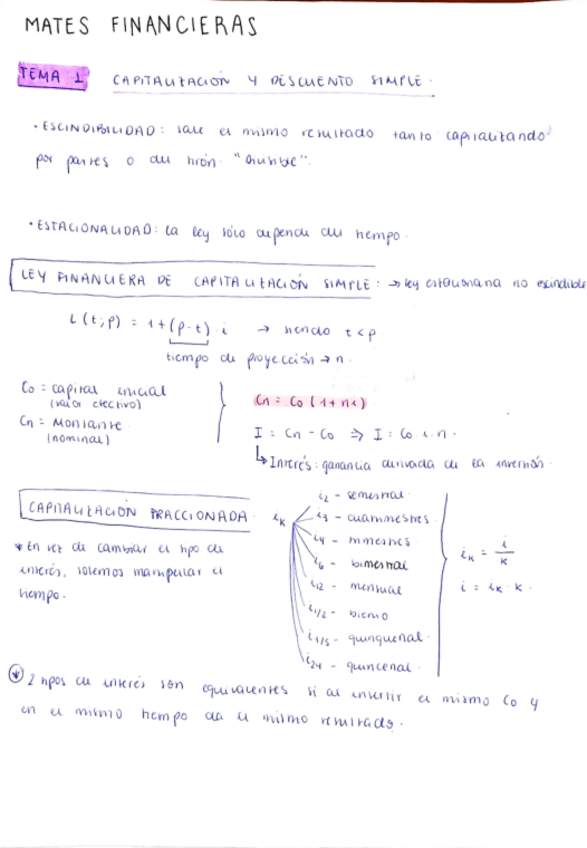 MATES FINANCIERAS
TEMA 1 CAPITALIZACIÓN Y DESCUENTO SIMPLE.
· ESCINDIBILIDAD: sale el mismo resultado tanto capitalizando
por partes o del tirón "divisible".
· ESTACIONALIDAD: la ley sólo depende del tiempo.
LEY FINANCIERA DE CAPITALIZACIÓN SIMPLE: → ley estacionaria no escindible
L(t;p) = 1+(p-t)·i → siendo t<p.
tiempo de proyección → n.
Co = capital inicial
(valor efectivo)
Cn = Montante
(nominal)
Cn = Co (1+ni)
I = Cn - Co ⇒ I = Co·i·n.
↳ Interés: ganancia derivada de la inversión.
CAPITALIZACIÓN FRACCIONADA
* En vez de cambiar el tipo de
interés, solemos manipular el
tiempo.
iK
i2 - semestral
i3 - cuatrimestres
i4 - trimestres
i6 - bimestral
i12 - mensual
i1/2 - bienio
i1/5 - quinquenal.
i24 - quincenal
iK = i/K
i = iK · K.
* 2 tipos de interés son equivalentes si al invertir el mismo Co y
en el mismo tiempo da el mismo resultado.